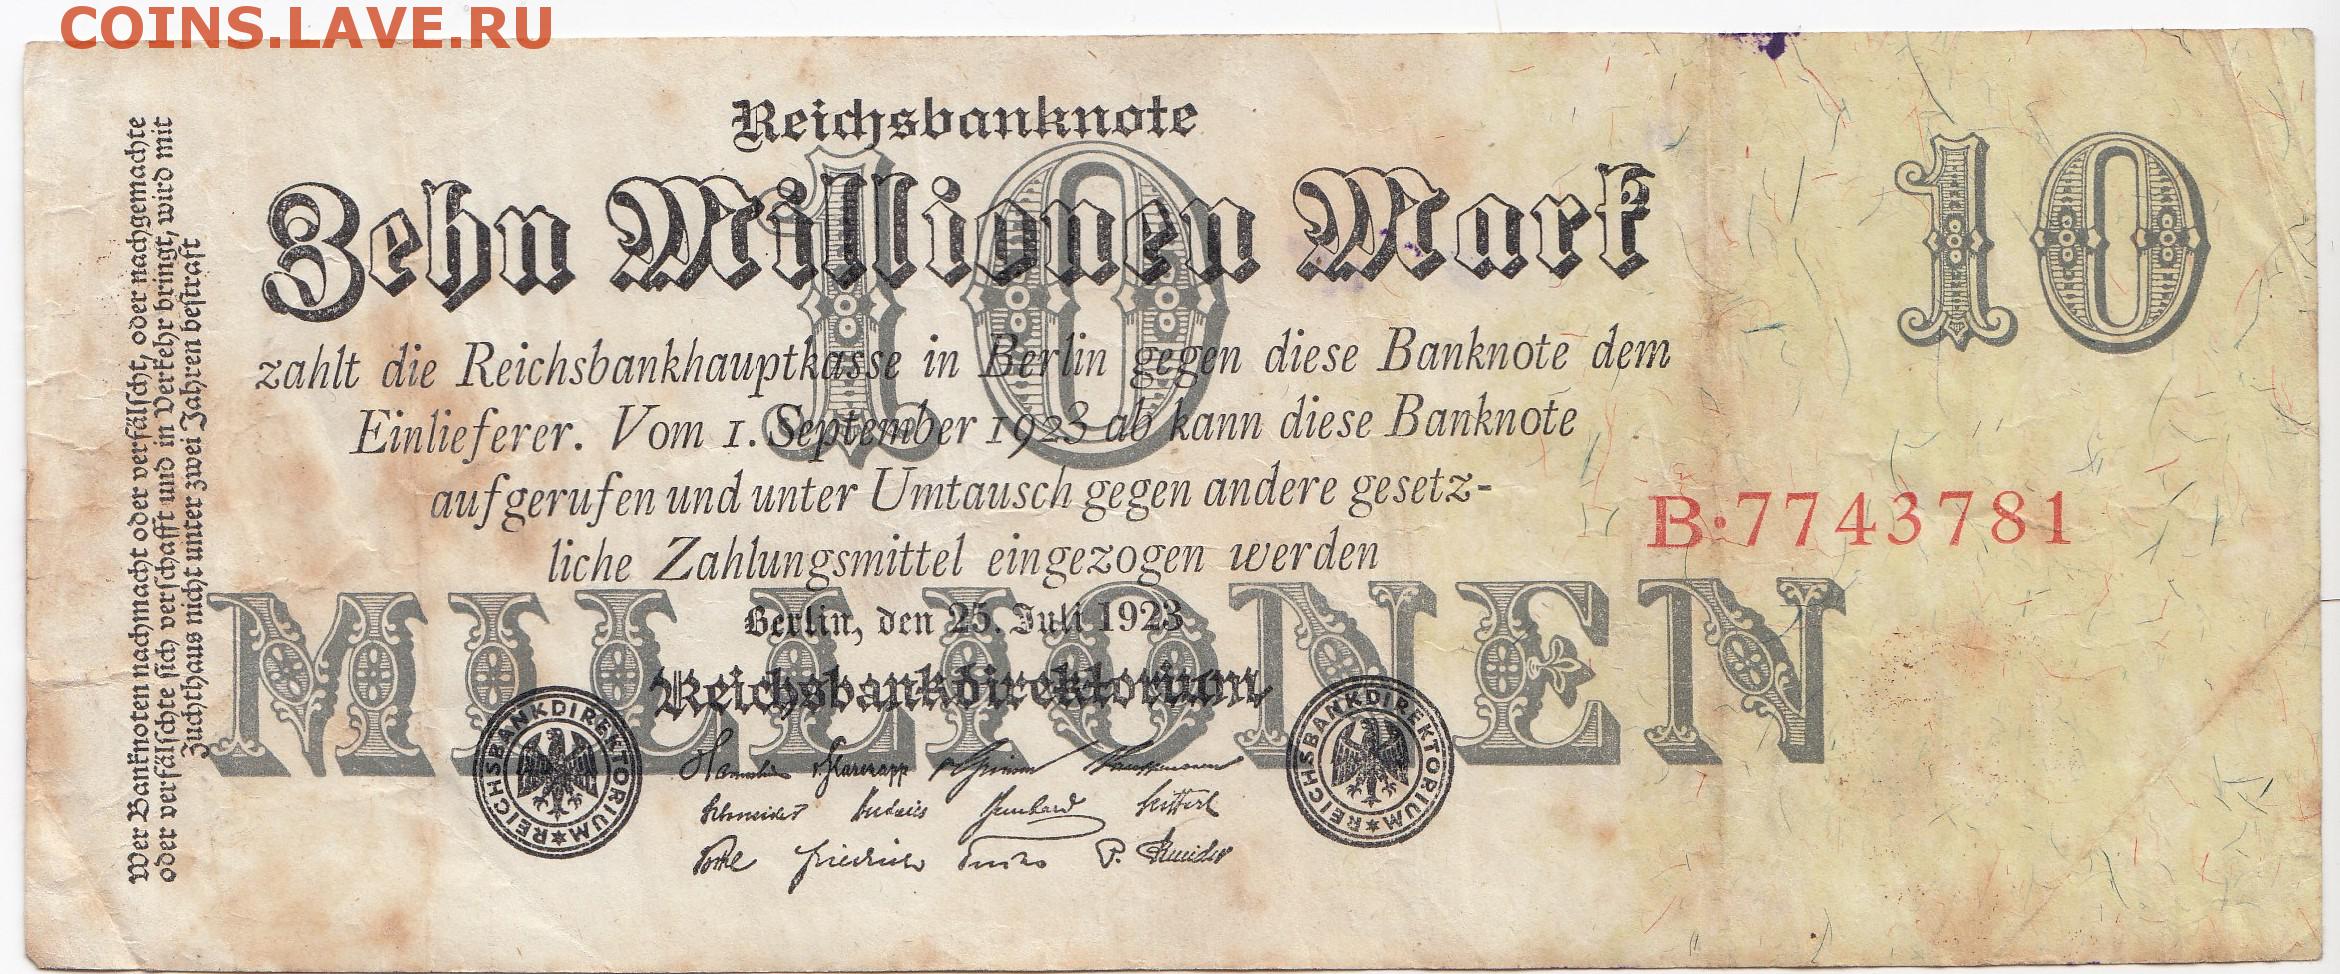 COINS.LAVE.RU
Reichsbanknote
10
Zehn Millionen Mark
10
zahlt die Reichsbankhauptkasse in Berlin gegen diese Banknote dem
Einlieferer. Vom 1. September 1923 ab kann diese Banknote
aufgerufen und unter Umtausch gegen andere gesetz-
liche Zahlungsmittel eingezogen werden
B·7743781
MILLIONEN
Berlin, den 25. Juli 1923
Reichsbankdirektorium
REICHSBANKDIREKTORIUM
REICHSBANKDIREKTORIUM
Schneider
Friedrich
P. Schneider
Wer Banknoten nachmacht oder verfälscht, oder nachgemachte
oder verfälschte sich verschafft und in Verkehr bringt, wird mit
Zuchthaus nicht unter zwei Jahren bestraft